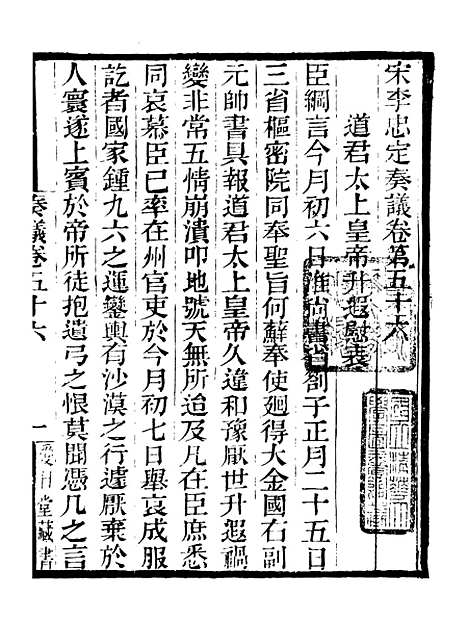 宋李忠定奏議卷第五十六
道君太上皇帝升遐慰表
臣綱言今月初六日准尚書省劄子正月二十五日
三省樞密院同奉聖旨何蘚奉使廻得大金國右副
元帥書具報道君太上皇帝久違和豫厭世升遐禍
變非常五情崩潰叩地號天無所迨及凡在臣庶悉
同哀慕臣已率在州官吏於今月初七日舉哀成服
訖者國家鍾九六之運鑾輿有沙漠之行遽厭棄於
人寰遂上賓於帝所徒抱遺弓之恨莫聞憑几之言
奏議卷五十六
一
堂藏書